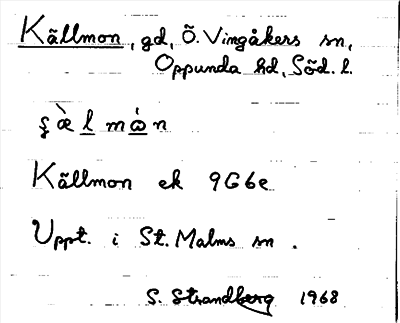 Källmon, gd, Ö. Vingåkers sn,
Oppunda hd, Söd. l.
Källmon ek 9G6e
Uppt. i St. Malms sn.
S. Strandberg 1968